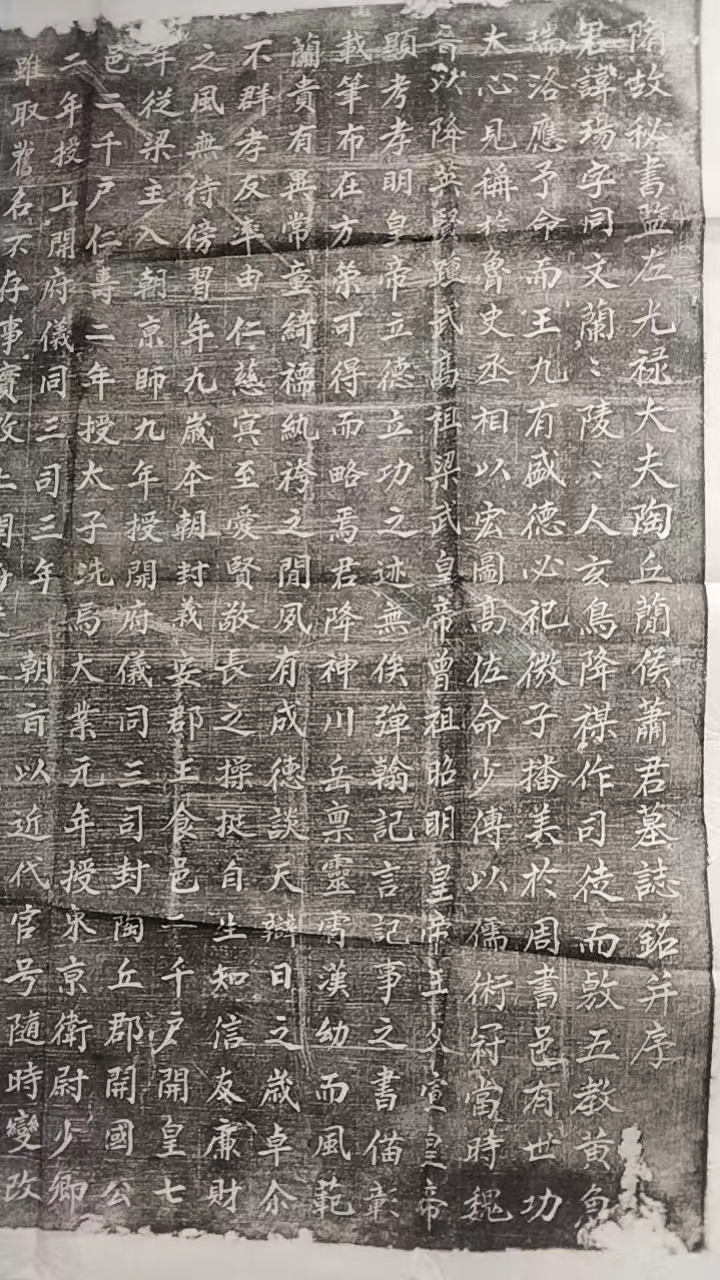 隋故秘書監左光祿大夫陶丘蕳侯蕭君墓誌銘并序
君諱瑒字同文蘭〻陵〻人玄鳥降禖作司徒而敷五教黄魚
瑞洛應予命而王九有盛德必祀微子播美於周書邑有世功
大心見稱於魯史丞相以宏圖髙佐命少傅以儒術冠當時魏
晉以降英賢踵武髙祖梁武皇帝曾祖昭明皇帝王父宣皇帝
顯考孝明皇帝立德立功之迹無俟彈翰記言記事之書備彰
載筆布在方策可得而略焉君降神川岳禀靈霄漢幼而風範
蘭貴有異常童綺襦紈袴之間夙有成德談天辯日之歲卓尒
不群孝友率由仁慈冥至愛賢敬長之操挺自生知信友廉財
之風無待傍習年九歲本朝封義安郡王食邑二千戸開皇七
年從梁主入朝京師九年授開府儀同三司封陶丘郡開國公
邑二千戸仁壽二年授太子洗馬大業元年授東京衛尉少卿
二年授上開府儀同三司三年朝旨以近代官号隨時變改
雖取舊名不存事實改上開府